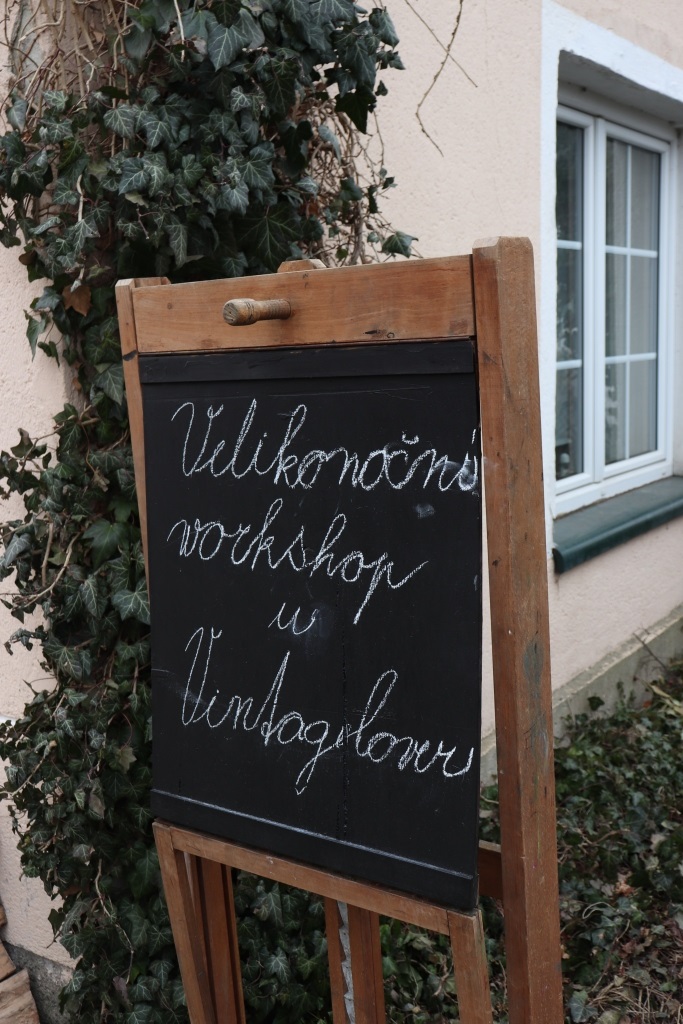 Velikonoční
workshop
u
Vintagelovru